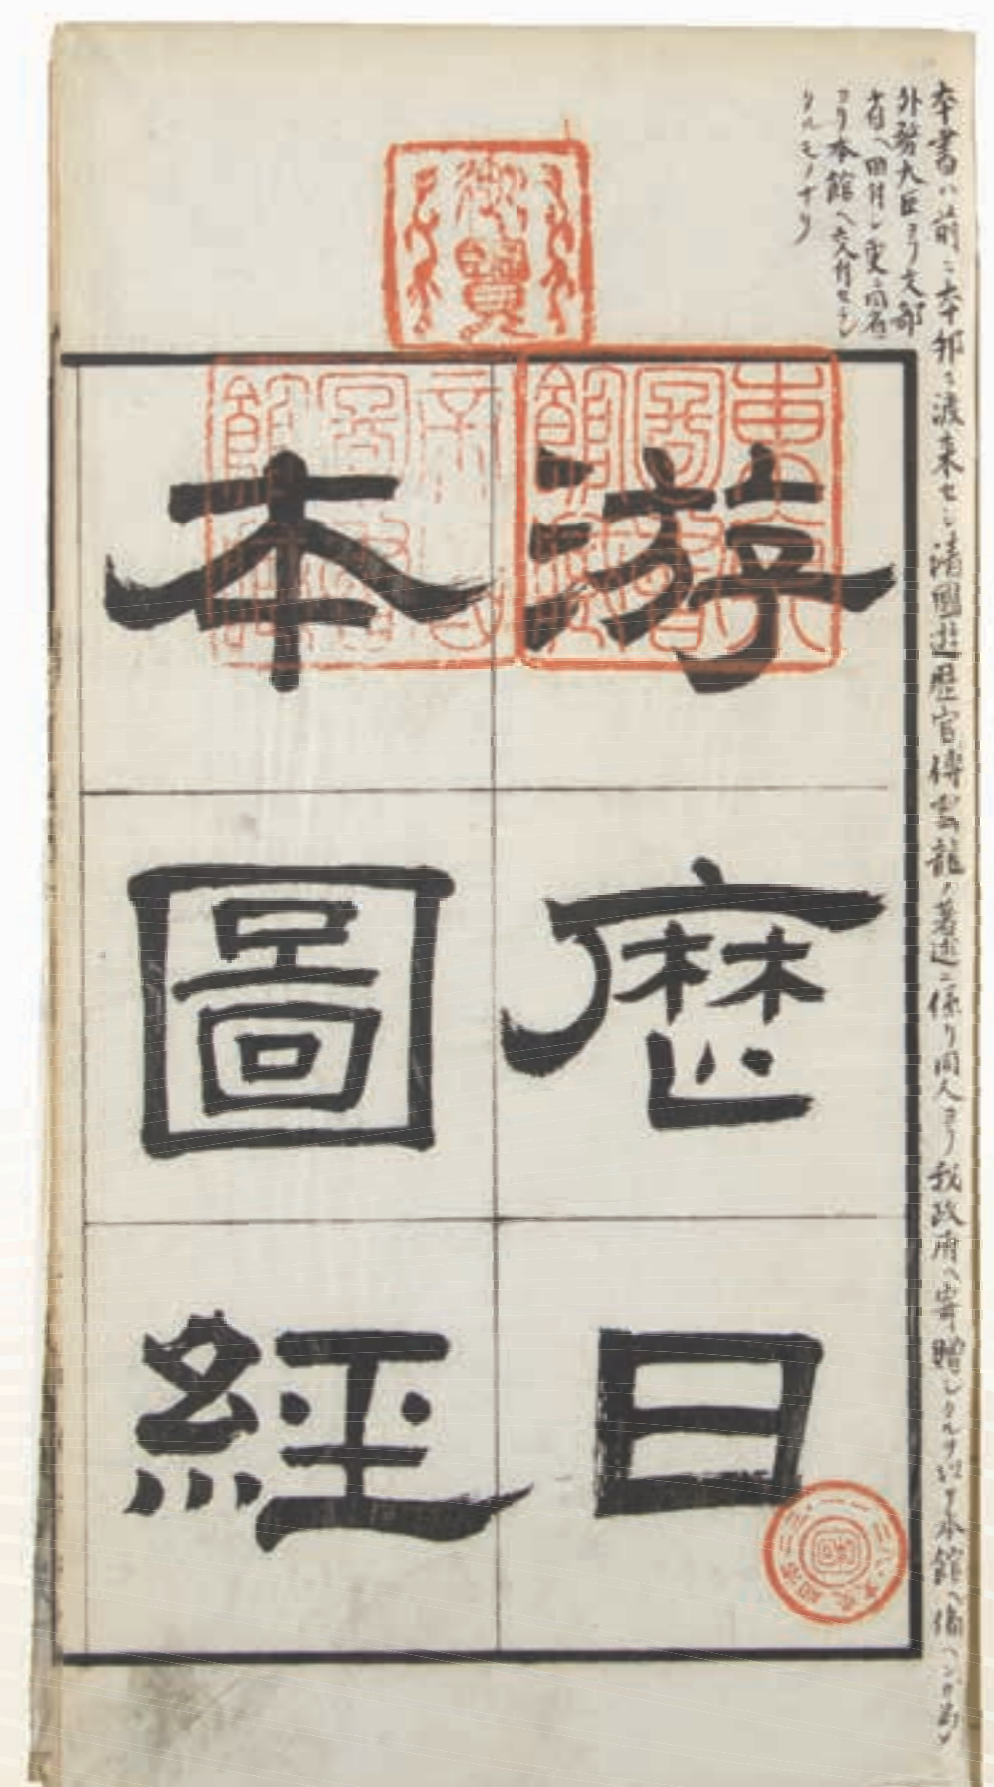 本書ハ前ニ本邦ニ渡来セシ清國遊歴官傅雲龍ノ著述ニ係リ同人ヨリ我政府ヘ寄贈シタルヲ以テ本館ヘ備ヘンガ為メ
外務大臣ヨリ文部
省ヘ回付シ更ニ同省
ヨリ本館ヘ交付セラレ
タルモノナリ
御覽
東京
圖書
館藏
游歷日
本圖經